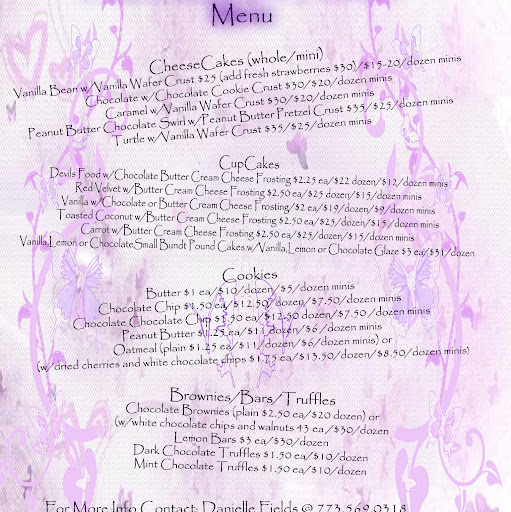 Menu
CheeseCakes (whole/mini)
Vanilla Bean w/Vanilla Wafer Crust $25 (add fresh strawberries $30)/$15-20/dozen minis
Chocolate w/Chocolate Cookie Crust $30/$20/dozen minis
Caramel w/Vanilla Wafer Crust $30/$20/dozen minis
Peanut Butter Chocolate Swirl w/Peanut Butter Pretzel Crust $35/$25/dozen minis
Turtle w/Vanilla Wafer Crust $35/$25/dozen minis
CupCakes
Devils Food w/Chocolate Butter Cream Cheese Frosting $2.25 ea/$22 dozen/$12/dozen minis
Red Velvet w/Butter Cream Cheese Frosting $2.50 ea/$25 dozen/$15/dozen minis
Vanilla w/Chocolate or Butter Cream Cheese Frosting/$2 ea/$19/dozen/$9/dozen minis
Toasted Coconut w/Butter Cream Cheese Frosting $2.50 ea/$25/dozen/$15/dozen minis
Carrot w/Butter Cream Cheese Frosting $2.50 ea/$25/dozen/$15/dozen minis
Vanilla,Lemon or Chocolate,Small Bundt Pound Cakes w/Vanilla,Lemon or Chocolate Glaze $3 ea/$31/dozen
Cookies
Butter $1 ea/$10/dozen/$5/dozen minis
Chocolate Chip $1.50 ea/$12.50/dozen/$7.50/dozen minis
Chocolate Chocolate Chip $1.50 ea/$12.50 dozen/$7.50/dozen minis
Peanut Butter $1.25 ea/$11 dozen/$6/dozen minis
Oatmeal (plain $1.25 ea/$11/dozen/$6/dozen minis) or
(w/dried cherries and white chocolate chips $1.75 ea/$13.50/dozen/$8.50/dozen minis)
Brownies/Bars/Truffles
Chocolate Brownies (plain $2.50 ea/$20 dozen) or
(w/white chocolate chips and walnuts 43 ea/$30/dozen
Lemon Bars $3 ea/$30/dozen
Dark Chocolate Truffles $1.50 ea/$10/dozen
Mint Chocolate Truffles $1.50 ea/$10/dozen
For More Info Contact: Danielle Fields @ 773.569.0318